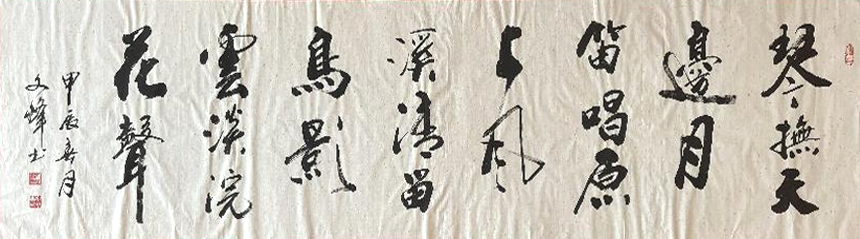 琴撫天
邊月
笛唱原
上風
溪清留
鳥影
雲淡浣
花聲
甲辰春月
文烽书